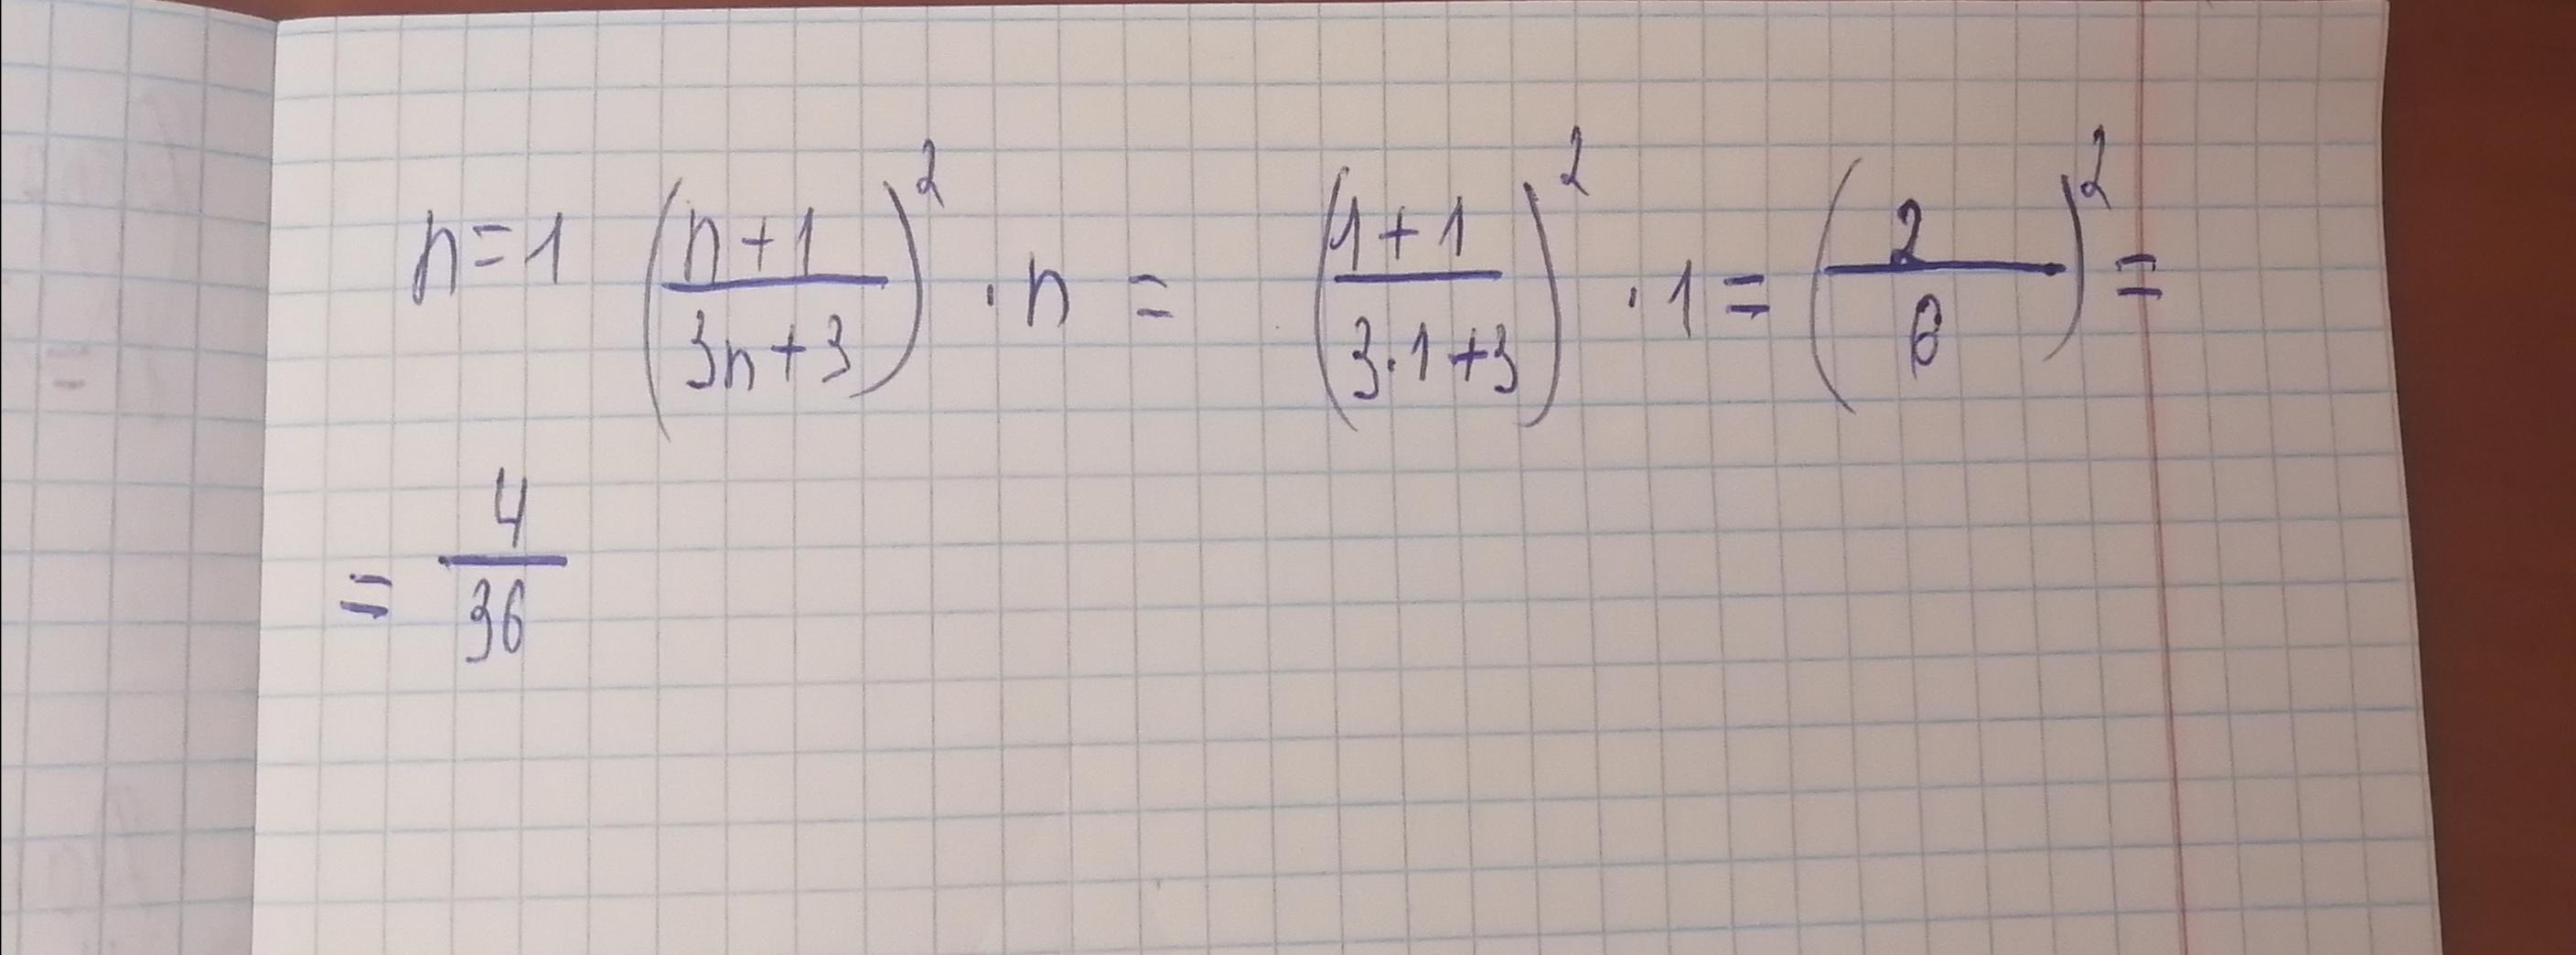 n=1 (n+1/3n+3)² · n = (1+1/3·1+3)² · 1 = (2/6)² =
= 4/36